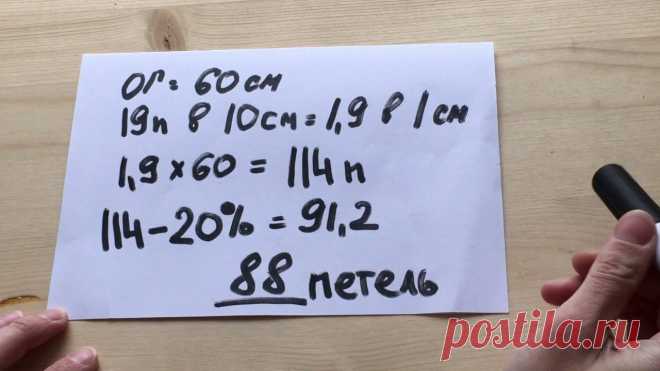 ОГ= 60см
19п в 10см = 1,9 в 1см
1,9 × 60 = 114 п
114 – 20% = 91,2
88 петель
postila.ru